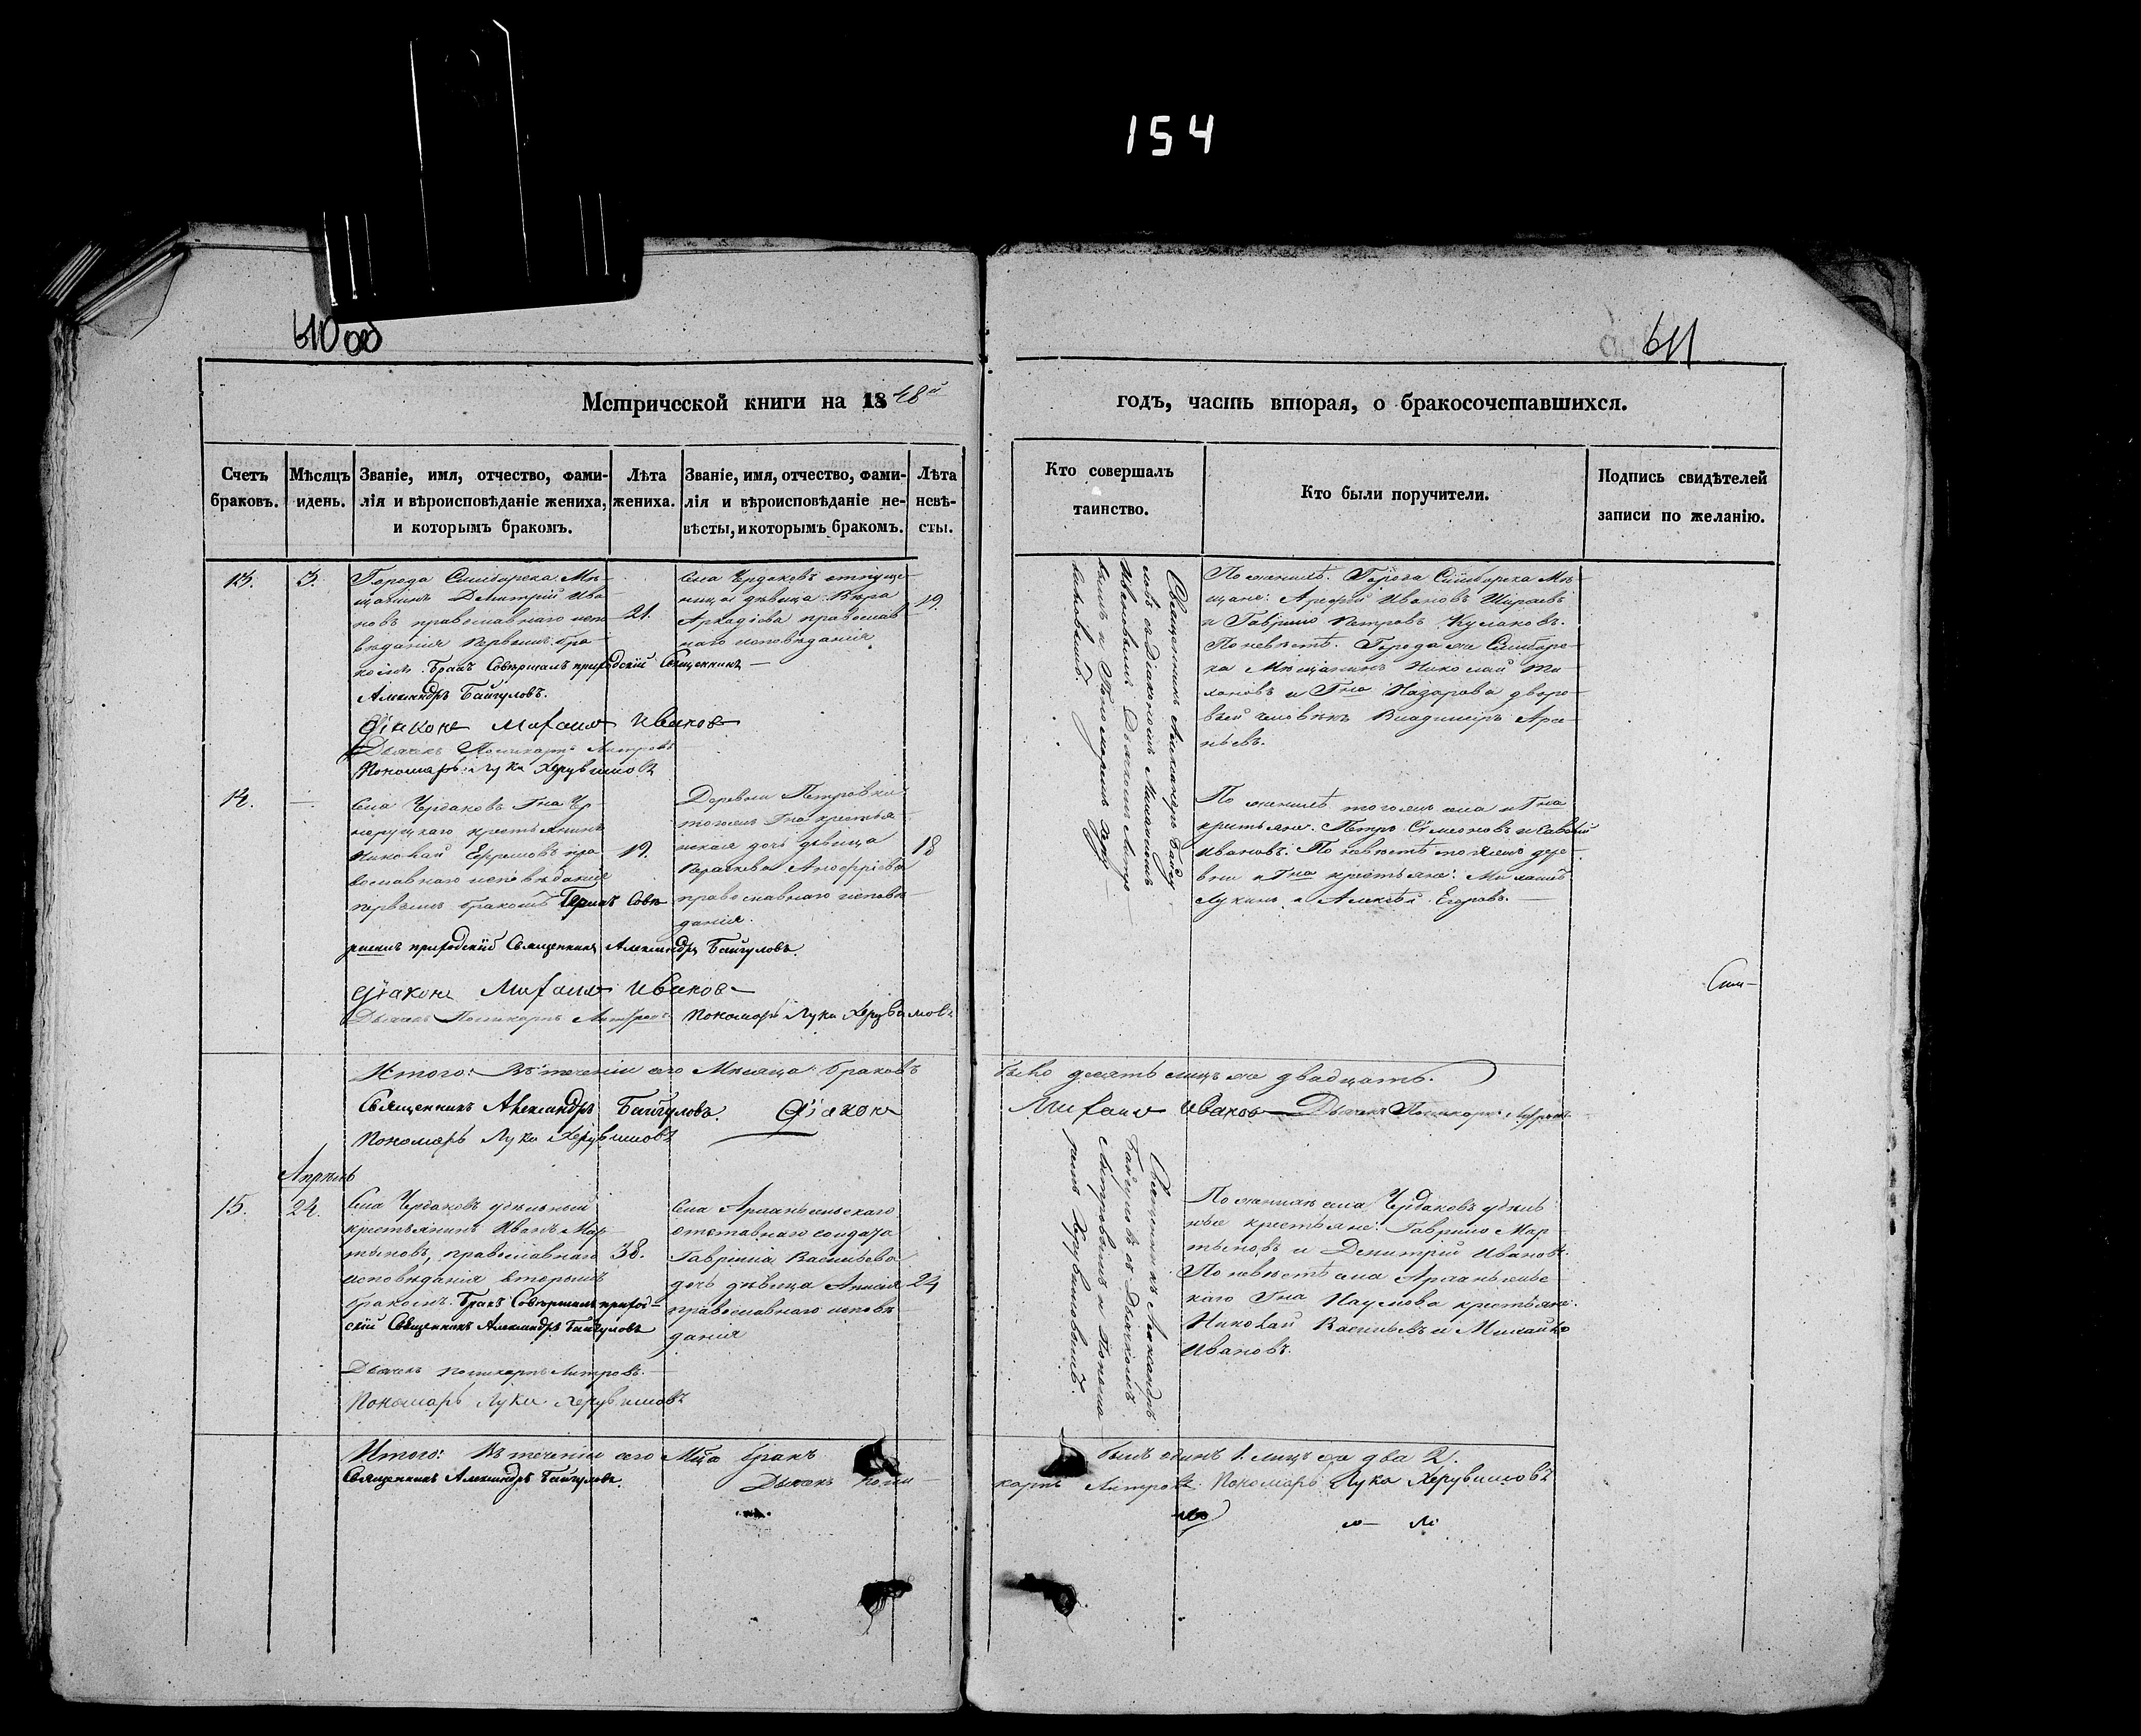 154
610 об
611
Метрической книги на 1848й
годъ, часть вторая, о бракосочетавшихся.
Счетъ браковъ.
Мѣсяцъ и день.
Званіе, имя, отчество, фами-
лія и вѣроисповѣданіе жениха,
и которымъ бракомъ.
Лѣта
жениха.
Званіе, имя, отчество, фами-
лія и вѣроисповѣданіе не-
вѣсты, и которымъ бракомъ.
Лѣта
невѣ-
сты.
Кто совершалъ
таинство.
Кто были поручители.
Подпись свидѣтелей
записи по желанію.
13.
3.
Города Симбирска Мѣ-
щанинъ Димитрій Ива-
новъ православнаго испо
вѣданія первымъ бра-
комъ. Бракъ Совершалъ приходскій Священникъ
Александръ Байгуловъ.
Діаконъ Михаилъ Ивановъ
Дьячекъ Поликарпъ
Пономарь Лука Херувимовъ
21.
Села Чердаковъ отпуще-
ница дѣвица Вѣра
Аркадіева православ
наго исповѣданія
19.
Священникъ Александръ Байгу
ловъ съ діакономъ Михаиломъ
Ивановымъ Дьячкомъ
и Пономаремъ Херу
вимовымъ.
По женихѣ. Города Симбирска Мѣ-
щане: Арефій Ивановъ
и Гаврило Петровъ Кулаковъ.
По невѣстѣ. Города же Симбирс-
ка Мѣщанинъ Николай
и Гна Назарова дворо-
вый человѣкъ Владимеръ
14.
Села Чердаковъ Гна
крестьянинъ
Николай Ефремовъ пра
вославнаго исповѣданія
первымъ бракомъ Бракъ Сове
ршалъ приходскій Священникъ Александръ Байгуловъ.
Діаконъ Михаилъ Ивановъ
Дьячекъ Поликарпъ
Пономарь Лука Херувимовъ
19.
Деревни Петровки
тогожъ Гна крестья
нская дочь дѣвица
православнаго исповѣ
данія.
18
По женихѣ тогожъ села и Гна
крестьяне. Петръ Симеоновъ и
Ивановъ. По невѣстѣ тойжъ дере
вни и Гна крестьяне:
Лукинъ и Алексѣй Егоровъ.
Сим-
Итого: Въ теченіи сего Мѣсяца браковъ
было десять лицъ же двадцать.
Священникъ Александръ Байгуловъ. Діаконъ
Михаилъ Ивановъ Дьячекъ Поликарпъ
Пономарь Лука Херувимовъ
Апрѣль
15.
24.
Села Чердаковъ удѣльный
крестьянинъ Иванъ Мар
тыновъ, православнаго
исповѣданія вторымъ
бракомъ. Бракъ Совершалъ приход-
скій Священникъ Александръ Байгуловъ
Дьячекъ Поликарпъ
Пономарь Лука Херувимовъ
38.
Села Архангельскаго
отставнаго солдата
Гавріила Васильева
дочь дѣвица Анисія
православнаго исповѣ
данія
24
Священникъ Александръ
Байгуловъ съ Дьячкомъ
и Понома
ремъ Херувимовымъ.
По женихѣ села Чердаковъ удѣль
ные крестьяне: Гаврило Мар
тыновъ и Димитрій Ивановъ.
По невѣстѣ села Архангельс-
каго Гна Наумова крестьяне:
Николай Васильевъ и Михайло
Ивановъ.
Итого: Въ теченіи сего Мца бракъ
былъ одинъ 1. лицъ же два 2.
Священникъ Александръ Байгуловъ.
Дьячекъ Поли-
карпъ Пономарь Лука Херувимовъ